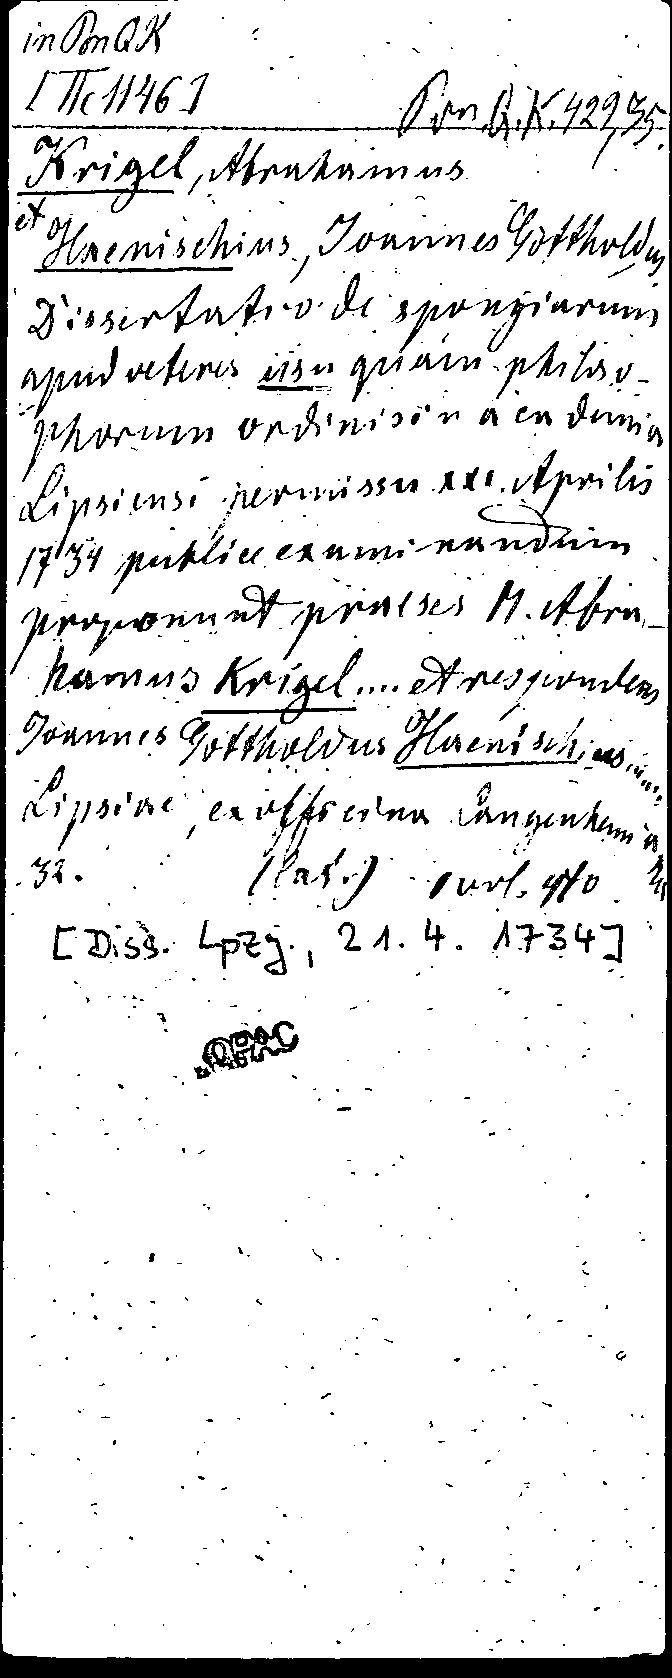 in Pon QK
[IIc 1146]
Pon. Q.K. 429,35.
Krigel, Abrahamus
et
Haenischius, Joannes Gottholdus
Dissertatio de spongiarum
apud veteres usu quam philoso-
phorum ordinis in academia
Lipsiensi permissu xxi. Aprilis
1734 publice examinandum
proponunt praeses M. Abra-
hamus Krigel.... et respondens
Joannes Gottholdus Haenischius....
Lipsiae, ex officina Langenhemia
32. (Lat.) 1 vol. 4to
[Diss. Lpzg., 21.4.1734]
OPAC